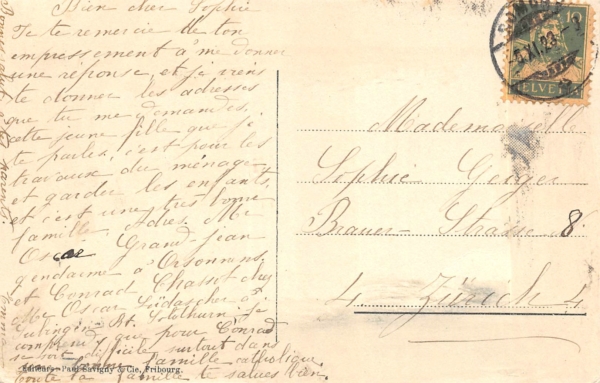 Bien cher Sophie
Je te remercie de ton
empressement à me donner
une réponse, et je viens
te donner les adresses
que tu me demandes.
cette jeune fille que je
te parles, c'est pour les
travaux du ménage
et garder les enfants,
et c'est une très bonne
famille. Adres. Mr
Oscar Grand-Jean
gendarme à Orsonnens,
et Conrad Chassot chez
Mr Oscar
St. Solothurn, je
comprend que pour Conrad
se soit difficile surtout dans
famille catholique,
toute la famille te salues bien.
Editeurs Paul Savigny & Cie, Fribourg.
10
HELVETIA
XI.28
Mademoiselle
Sophie Geiger
Brauer-Strasse 8
4 Zürich 4